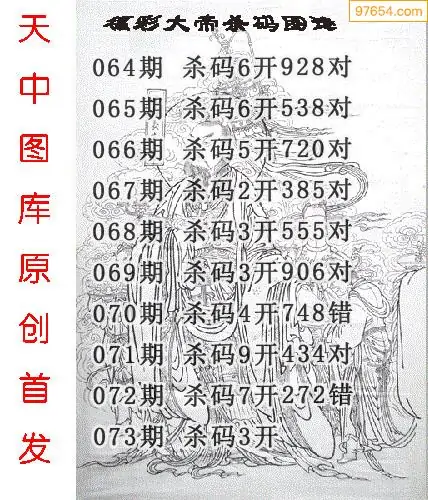 97654.com
福彩大帝杀码图逸
天中图库原创首发
064期 杀码6开928对
065期 杀码6开538对
066期 杀码5开720对
067期 杀码2开385对
068期 杀码3开555对
069期 杀码3开906对
070期 杀码4开748错
071期 杀码9开434对
072期 杀码7开272错
073期 杀码3开